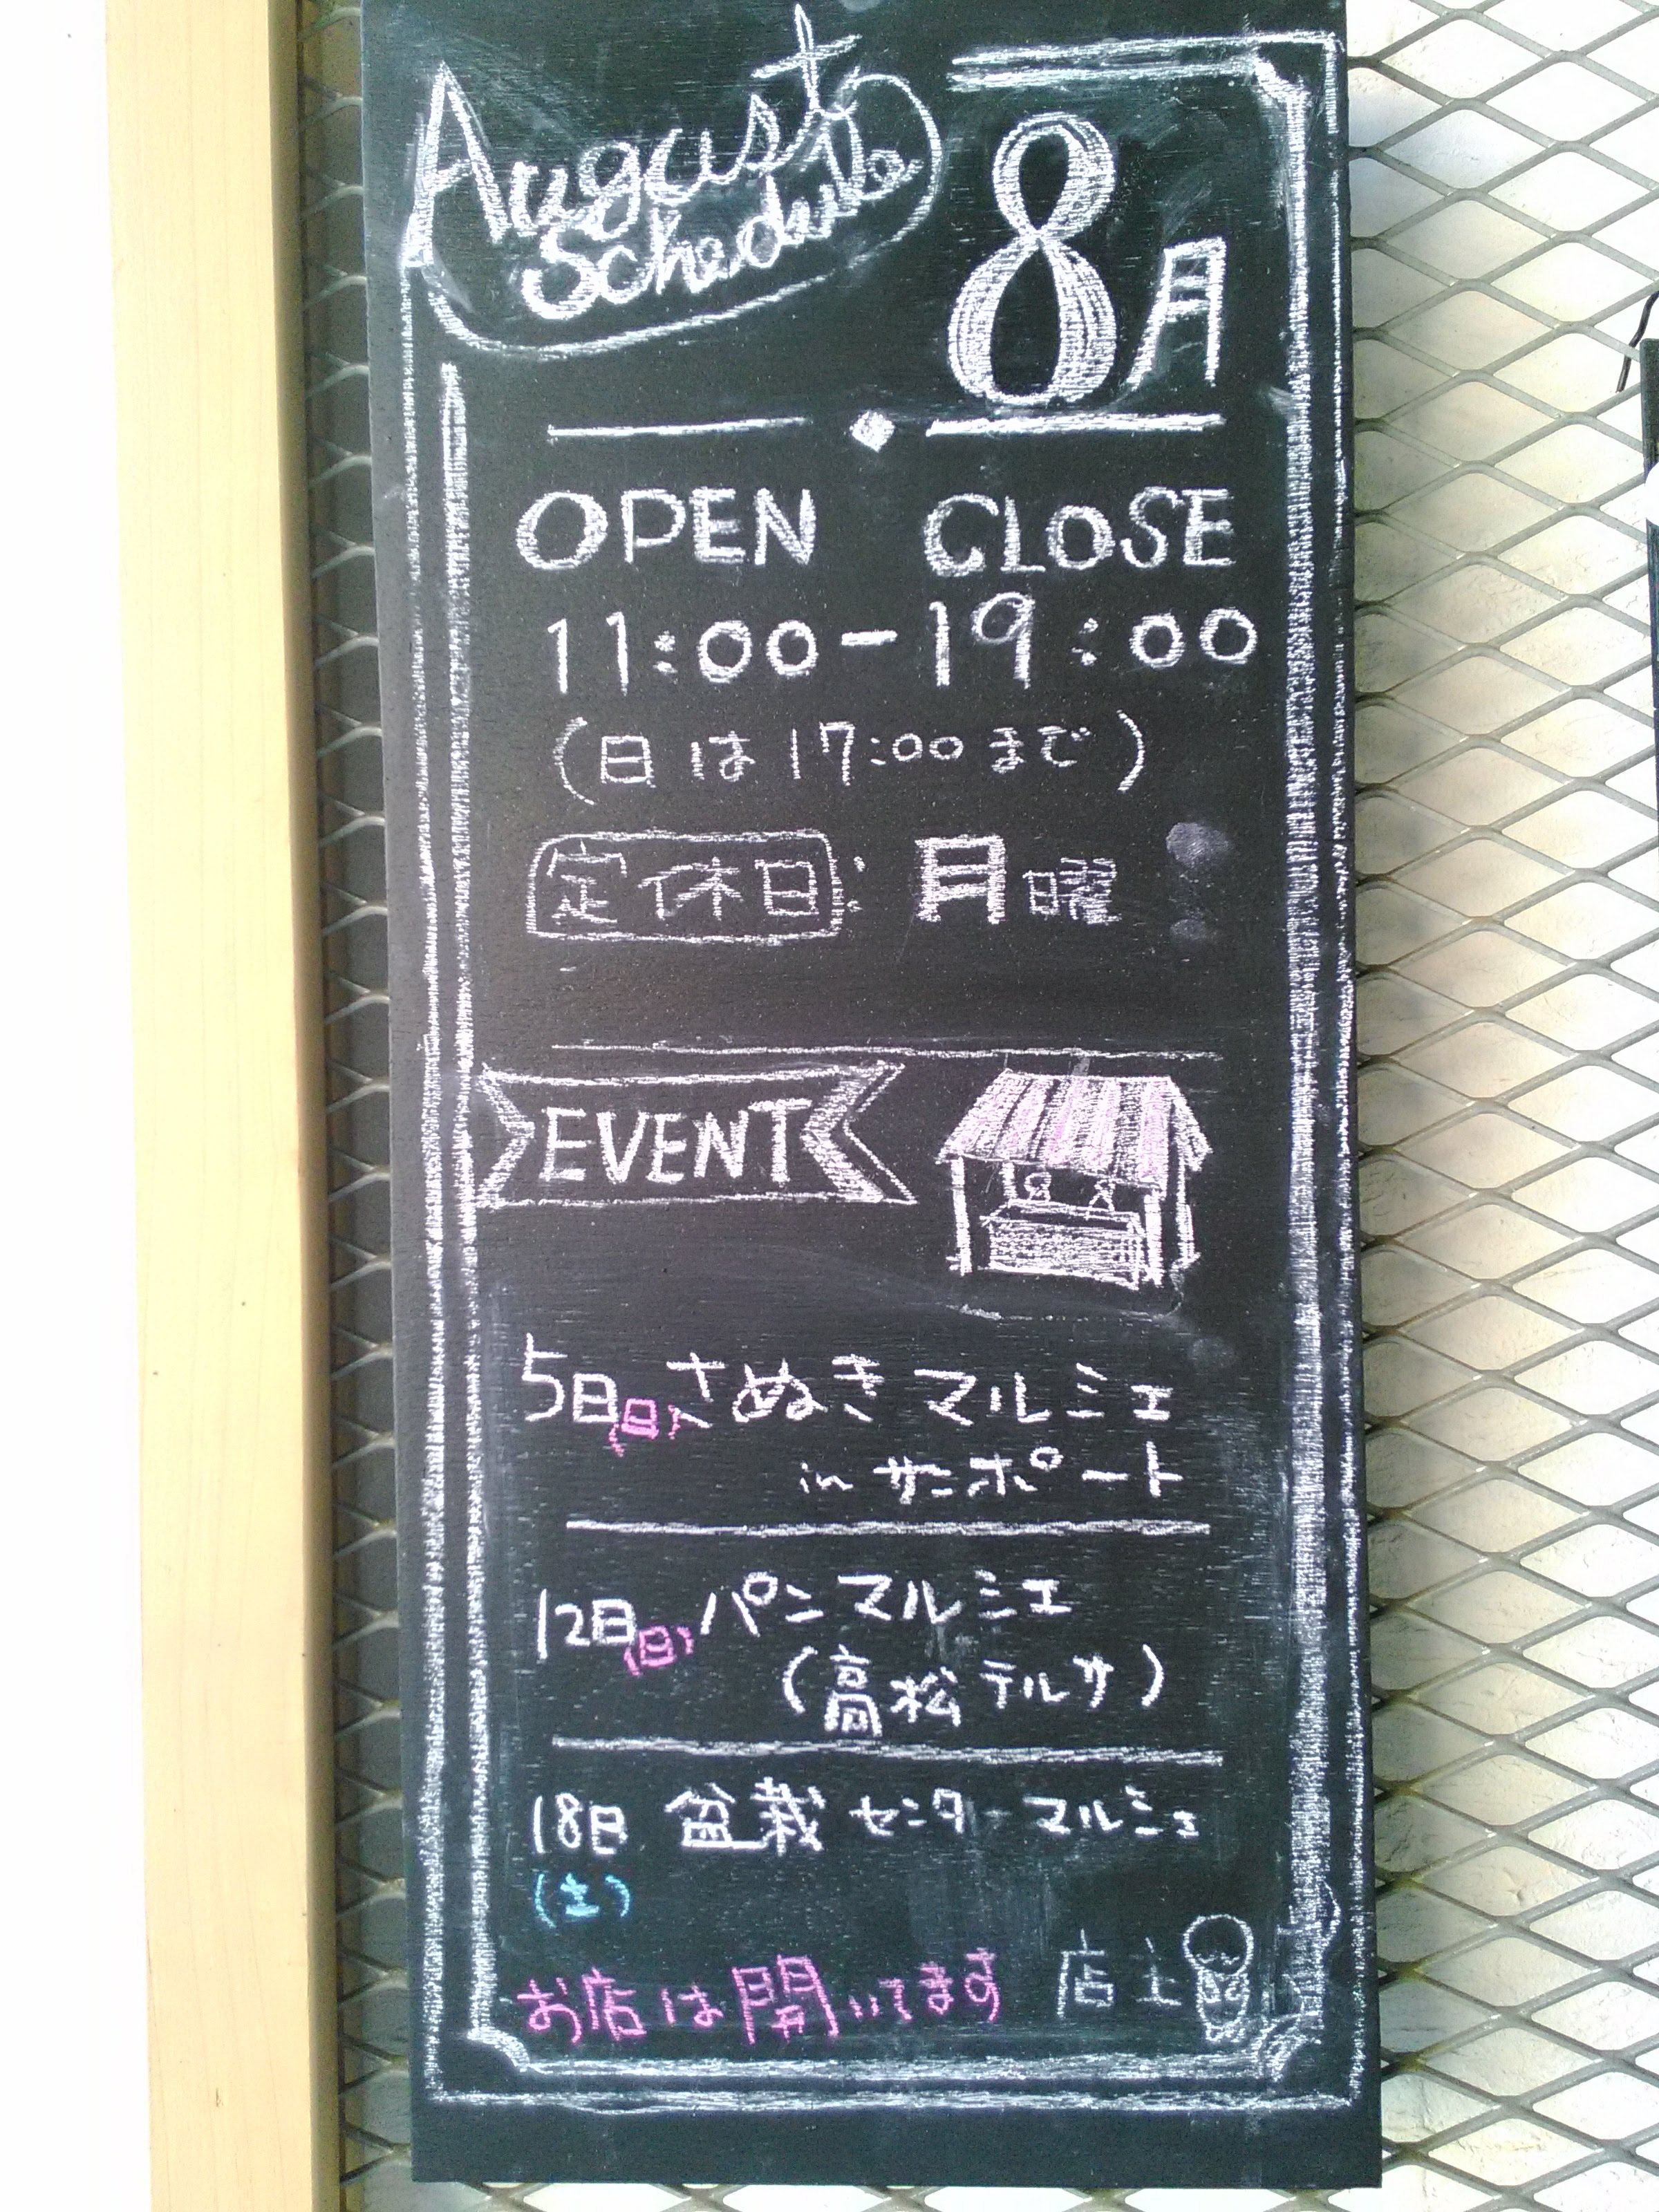 August
Schedule
8月
OPEN CLOSE
11:00-19:00
(日は17:00まで)
定休日: 月曜
EVENT
5日(日)さぬきマルシェ
in サンポート
12日(日)パンマルシェ
(高松テルサ)
18日 盆栽センターマルシェ
(土)
お店は開いてます 店主